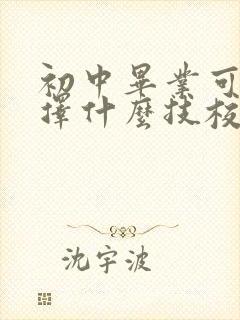 初中畢業可
擇什麼技校
沈宇波